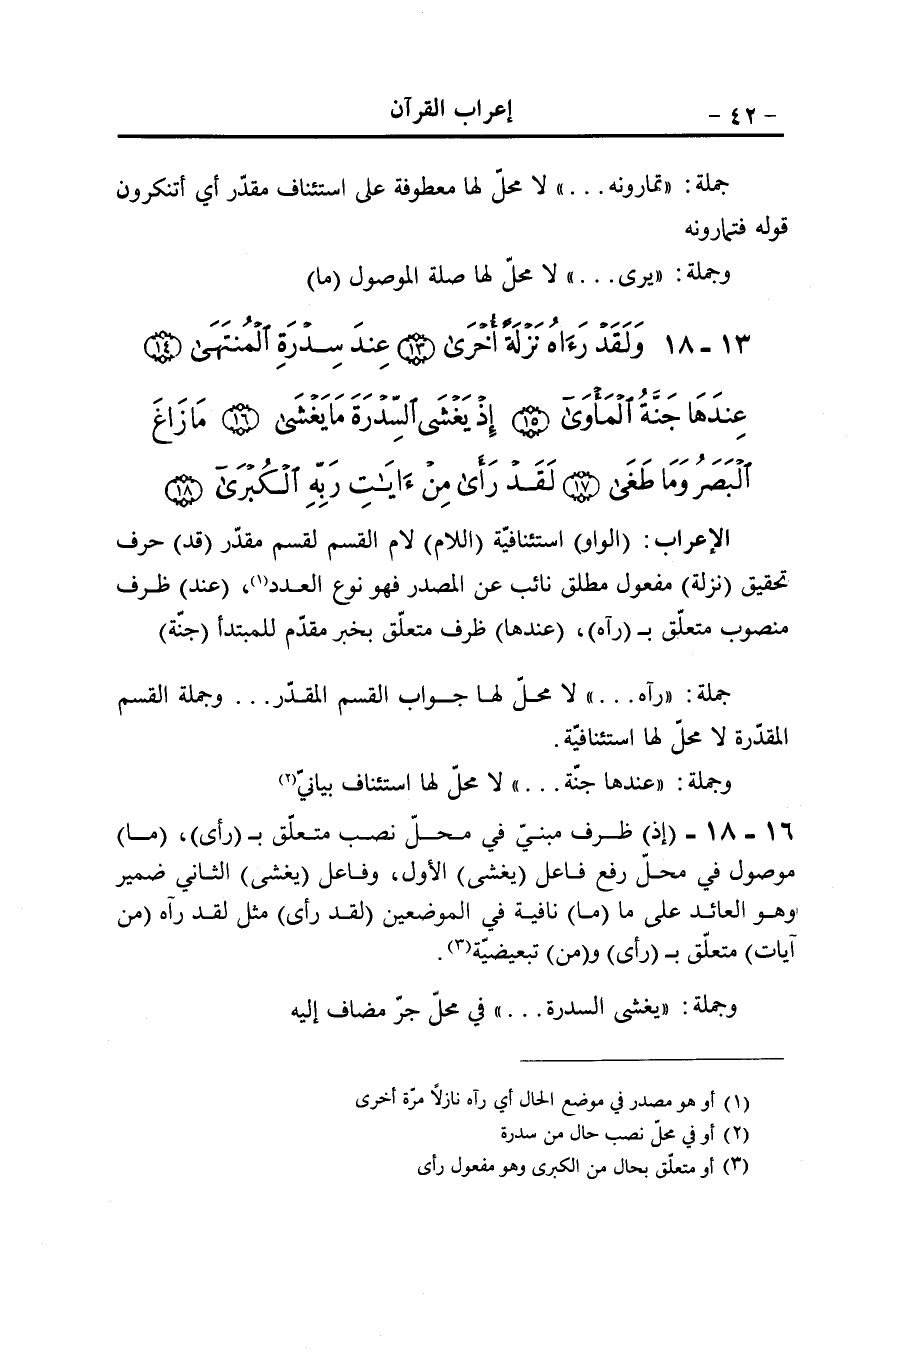 - ٤٢ - إعراب القرآن
جملة: «تمارونه...» لا محلّ لها معطوفة على استئناف مقدّر أي أتنكرون
قوله فتمارونه
وجملة: «يرى...» لا محلّ لها صلة الموصول (ما)
١٣ - ١٨ وَلَقَدْ رَءَاهُ نَزْلَةً أُخْرَىٰ ﴿١٣﴾ عِندَ سِدْرَةِ ٱلْمُنتَهَىٰ ﴿١٤﴾
عِندَهَا جَنَّةُ ٱلْمَأْوَىٰٓ ﴿١٥﴾ إِذْ يَغْشَى ٱلسِّدْرَةَ مَا يَغْشَىٰ ﴿١٦﴾ مَا زَاغَ
ٱلْبَصَرُ وَمَا طَغَىٰ ﴿١٧﴾ لَقَدْ رَأَىٰ مِنْ ءَايَـٰتِ رَبِّهِ ٱلْكُبْرَىٰٓ ﴿١٨﴾
الإعراب: (الواو) استئنافيّة (اللام) لام القسم لقسم مقدّر (قد) حرف
تحقيق (نزلة) مفعول مطلق نائب عن المصدر فهو نوع العدد(١)، (عند) ظرف
منصوب متعلّق بـ (رآه)، (عندها) ظرف متعلّق بخبر مقدّم للمبتدأ (جنّة)
جملة: «رآه...» لا محلّ لها جواب القسم المقدّر... وجملة القسم
المقدّرة لا محلّ لها استئنافيّة.
وجملة: «عندها جنّة...» لا محلّ لها استئناف بيانيّ(٢)
١٦ - ١٨ - (إذ) ظرف مبنيّ في محلّ نصب متعلّق بـ (رأى)، (ما)
موصول في محلّ رفع فاعل (يغشى) الأول، وفاعل (يغشى) الثاني ضمير
وهو العائد على ما (ما) نافية في الموضعين (لقد رأى) مثل لقد رآه (من
آيات) متعلّق بـ (رأى) و(من) تبعيضيّة(٣).
وجملة: «يغشى السدرة...» في محلّ جرّ مضاف إليه
(١) أو هو مصدر في موضع الحال أي رآه نازلاً مرّة أخرى
(٢) أو في محلّ نصب حال من سدرة
(٣) أو متعلّق بحال من الكبرى وهو مفعول رأى